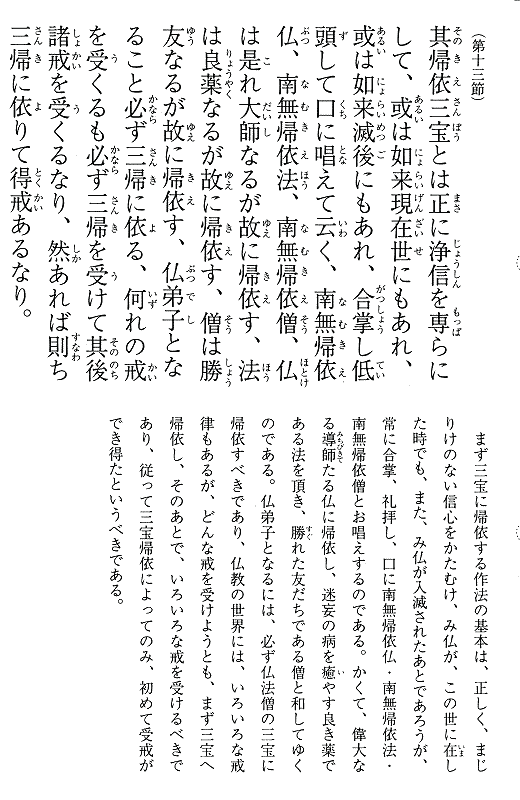 （第十三節）
其帰依三宝とは正に浄信を専らに
して、或は如来現在世にもあれ、
或は如来滅後にもあれ、合掌し低
頭して口に唱えて云く、南無帰依
仏、南無帰依法、南無帰依僧、仏
は是れ大師なるが故に帰依す、法
は良薬なるが故に帰依す、僧は勝
友なるが故に帰依す、仏弟子とな
ること必ず三帰に依る、何れの戒
を受くるも必ず三帰を受けて其後
諸戒を受くるなり、然あれば則ち
三帰に依りて得戒あるなり。
まず三宝に帰依する作法の基本は、正しく、まじ
りけのない信心をかたむけ、み仏が、この世に在し
た時でも、また、み仏が入滅されたあとであろうが、
常に合掌、礼拝し、口に南無帰依仏・南無帰依法・
南無帰依僧とお唱えするのである。かくて、偉大な
る導師たる仏に帰依し、迷妄の病を癒やす良き薬で
ある法を頂き、勝れた友だちである僧と和してゆく
のである。仏弟子となるには、必ず仏法僧の三宝に
帰依すべきであり、仏教の世界には、いろいろな戒
律もあるが、どんな戒を受けようとも、まず三宝へ
帰依し、そのあとで、いろいろな戒を受けるべきで
あり、従って三宝帰依によってのみ、初めて受戒が
でき得たというべきである。